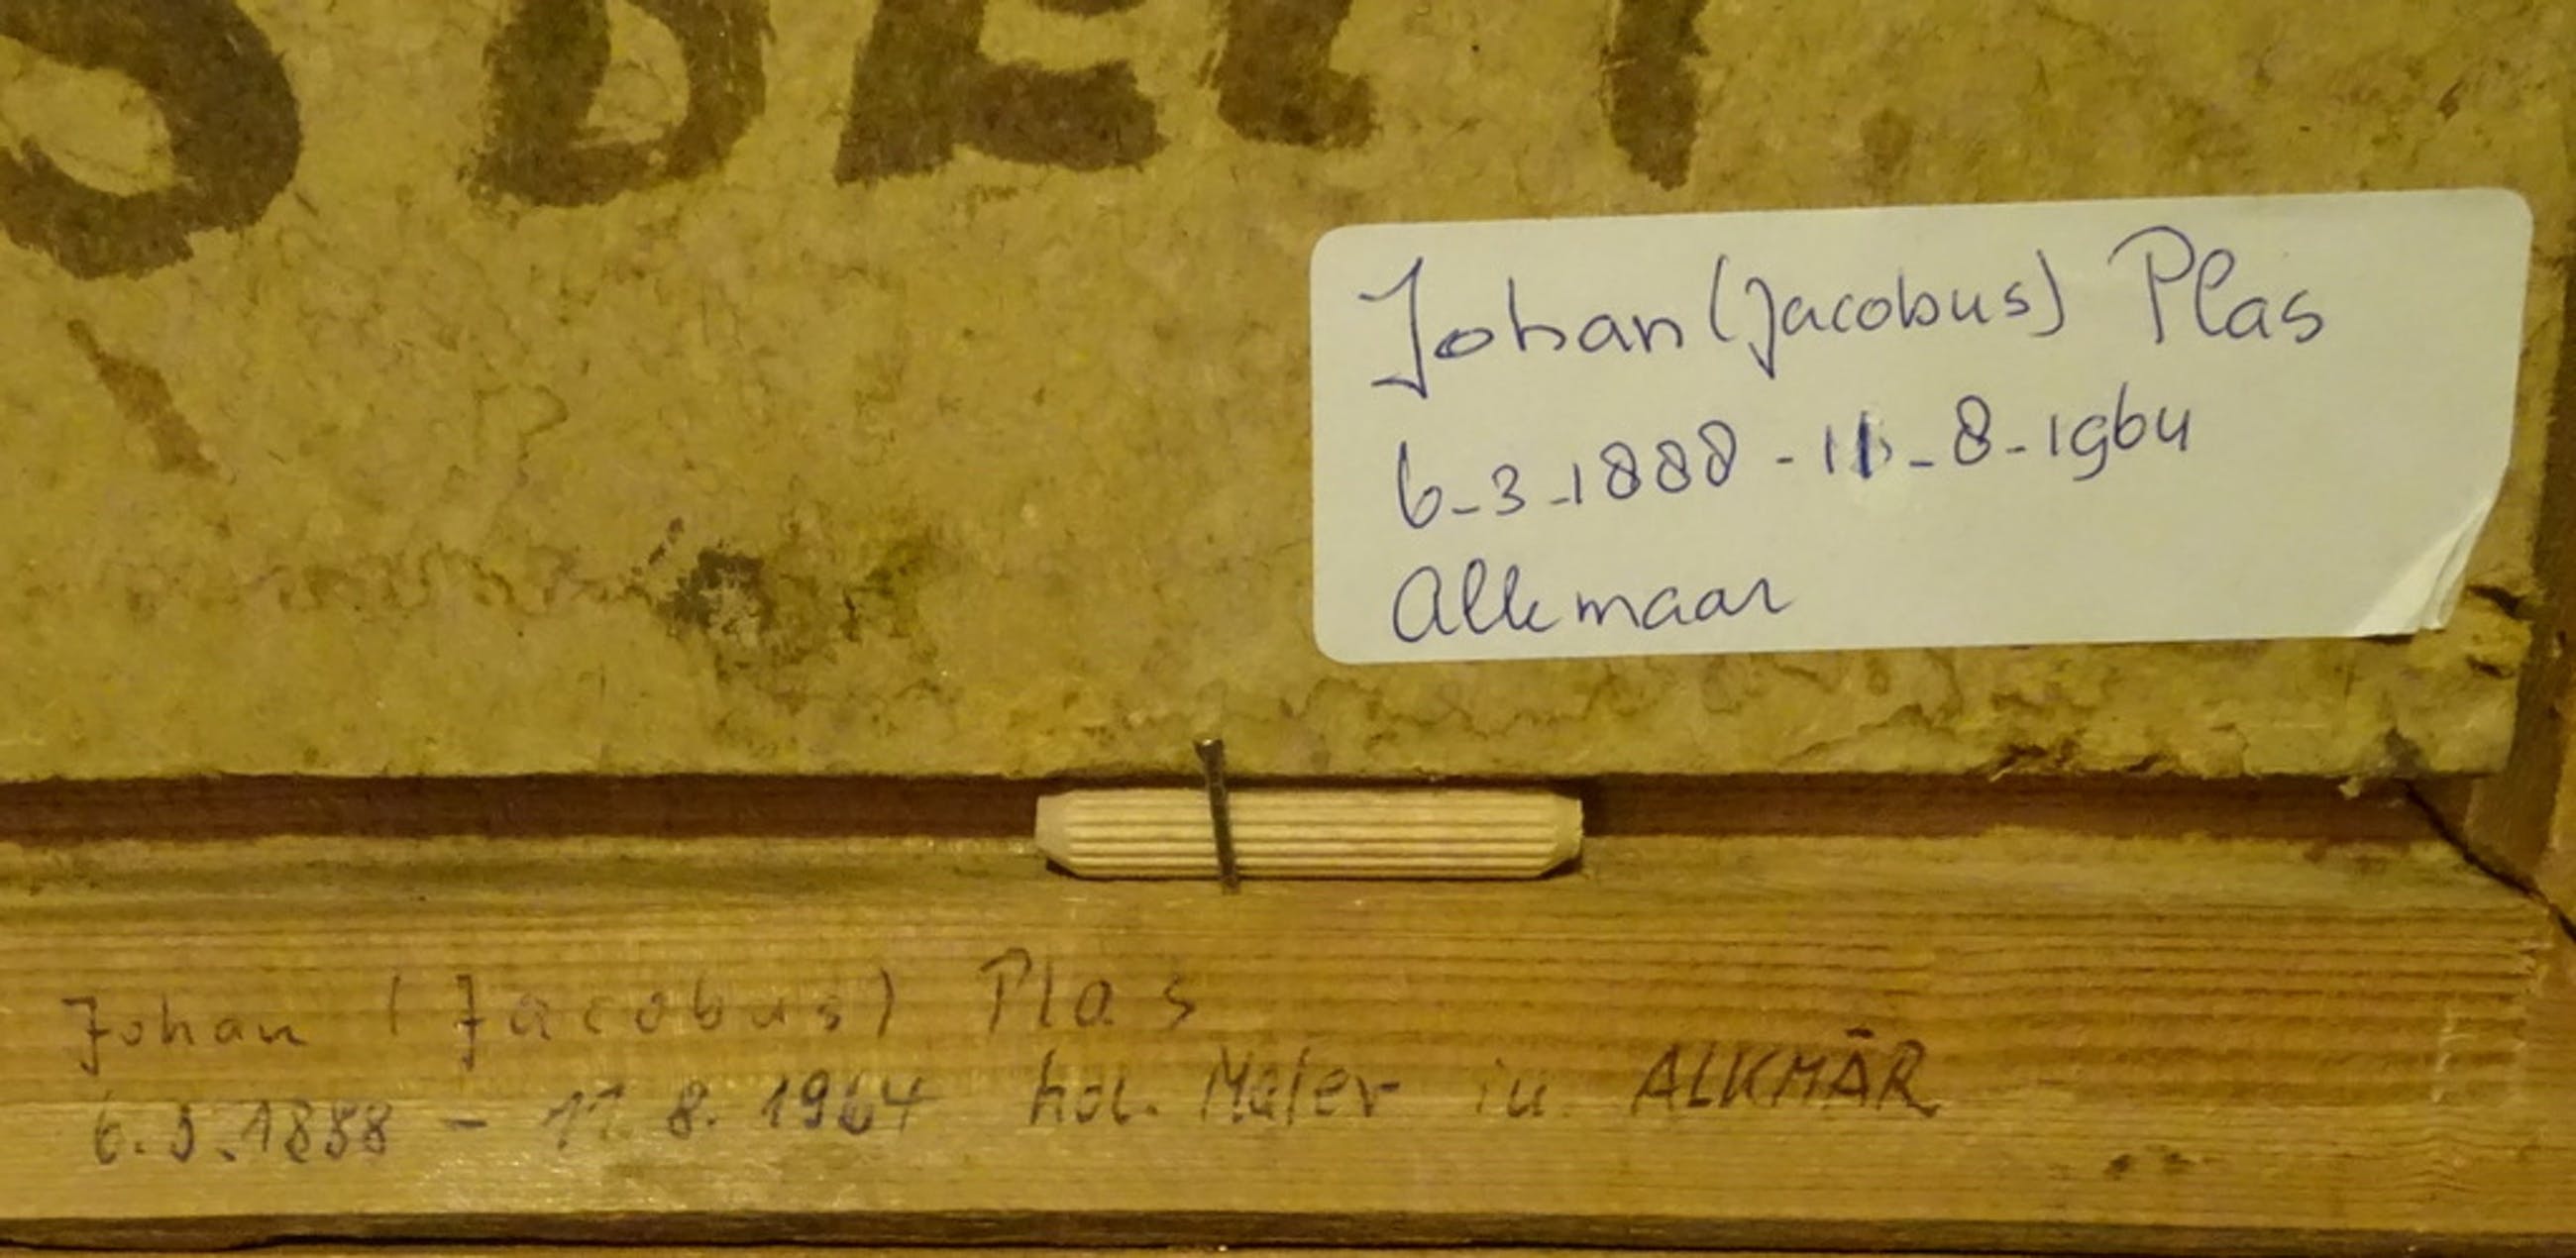 Johan (Jacobus) Plas
6-3-1888 - 11-8-1964
Alkmaar
Johan (Jacobus) Plas
6.3.1888 - 11.8.1964 hol. Maler in ALKMĀR